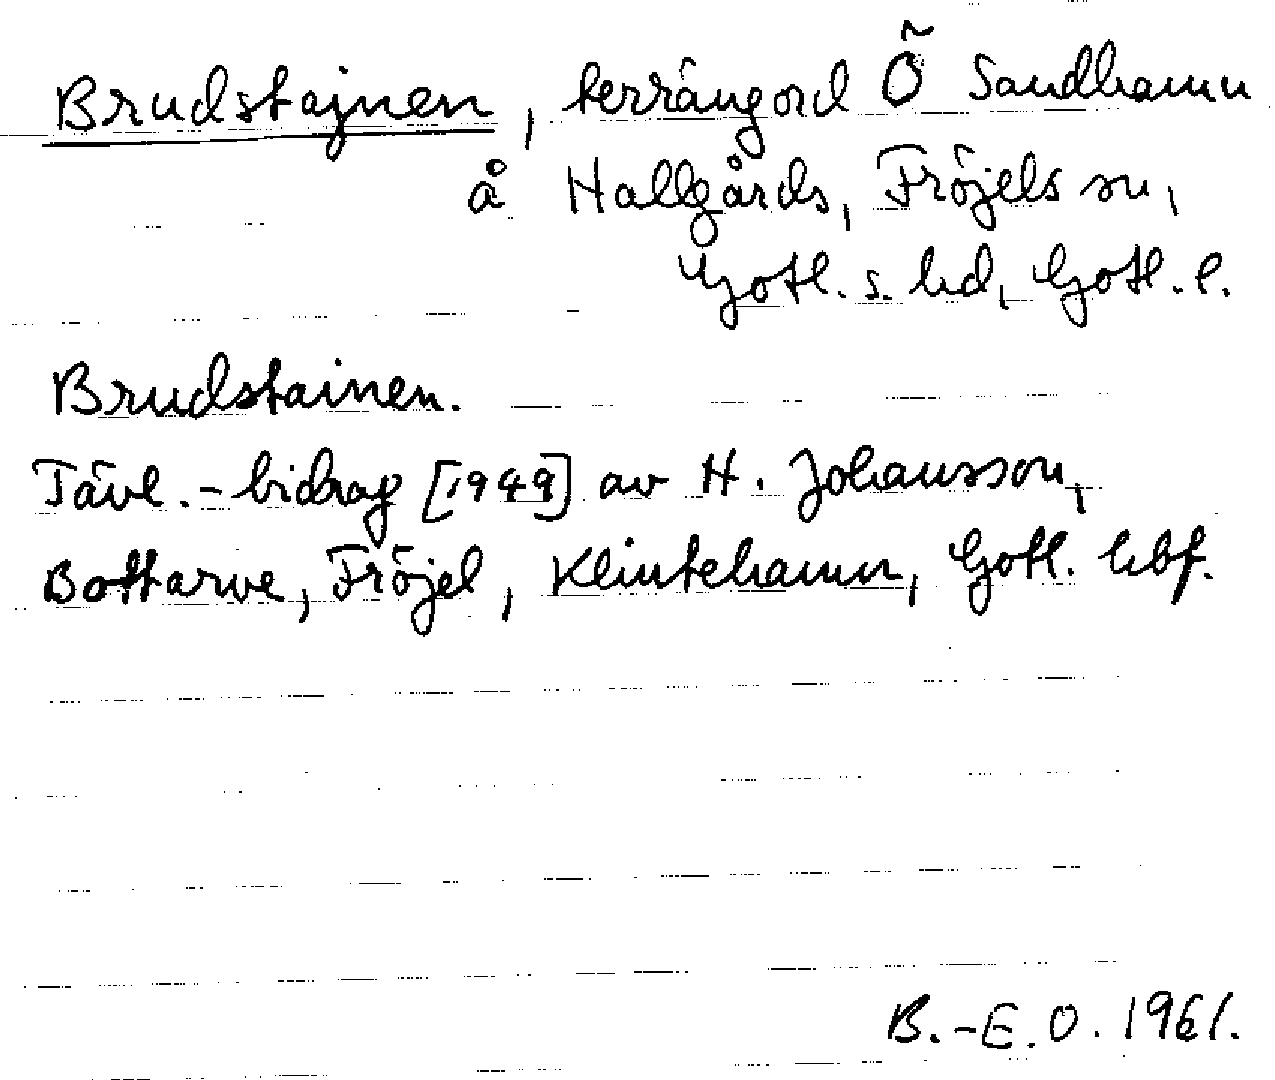 Brudstajnen, terrängord Ö Sandhamn
å Hallgårds, Fröjels sn,
Gotl. s. hd, Gotl. l.
Brudstainen.
Tävl.-bidrag [1949] av H. Johansson,
Bottarve, Fröjel, Klintehamn, Gotl. hbf.
B.-E. O. 1961.